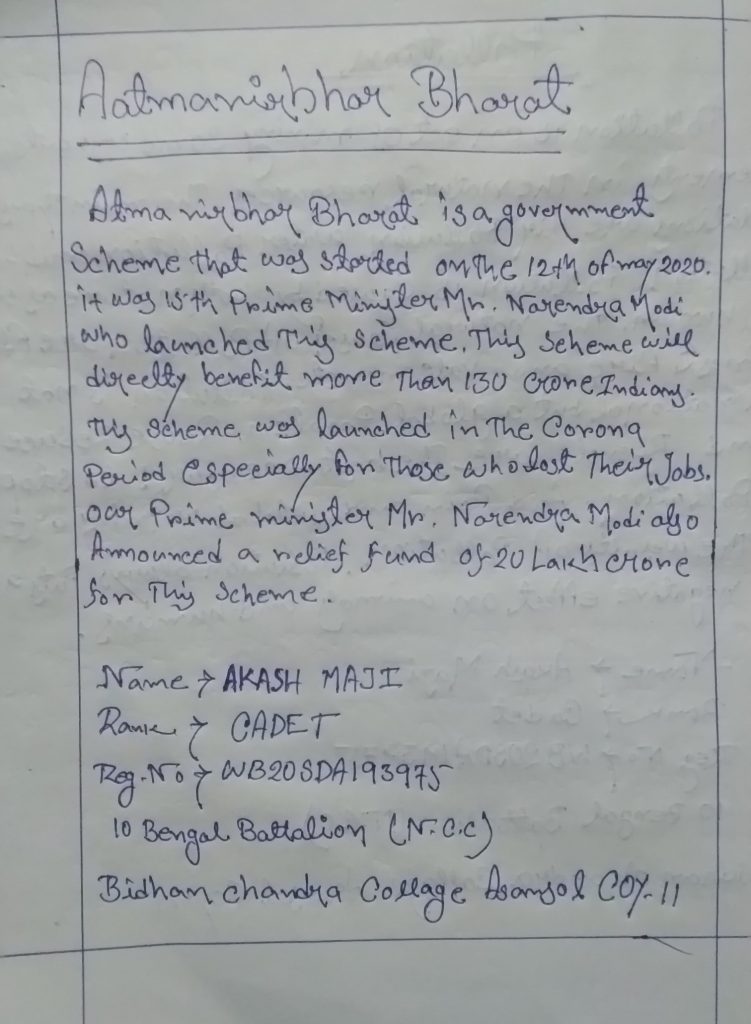 Aatmanirbhar Bharat
Atma nirbhar Bharat is a government
Scheme that was started on the 12th of may 2020.
it was 15th Prime Minister Mr. Narendra Modi
who launched This scheme. This scheme will
direclty benefit more Than 130 crore Indians.
This scheme was launched in The Corona
Period especially for Those who lost Their Jobs.
our Prime minister Mr. Narendra Modi also
Announced a relief fund of 20 Lakh crore
for This scheme.
Name → AKASH MAJI
Rank → CADET
Reg.No → WB20SDA193975
10 Bengal Battalion (N.C.C)
Bidhan chandra Collage Asansol COY-11